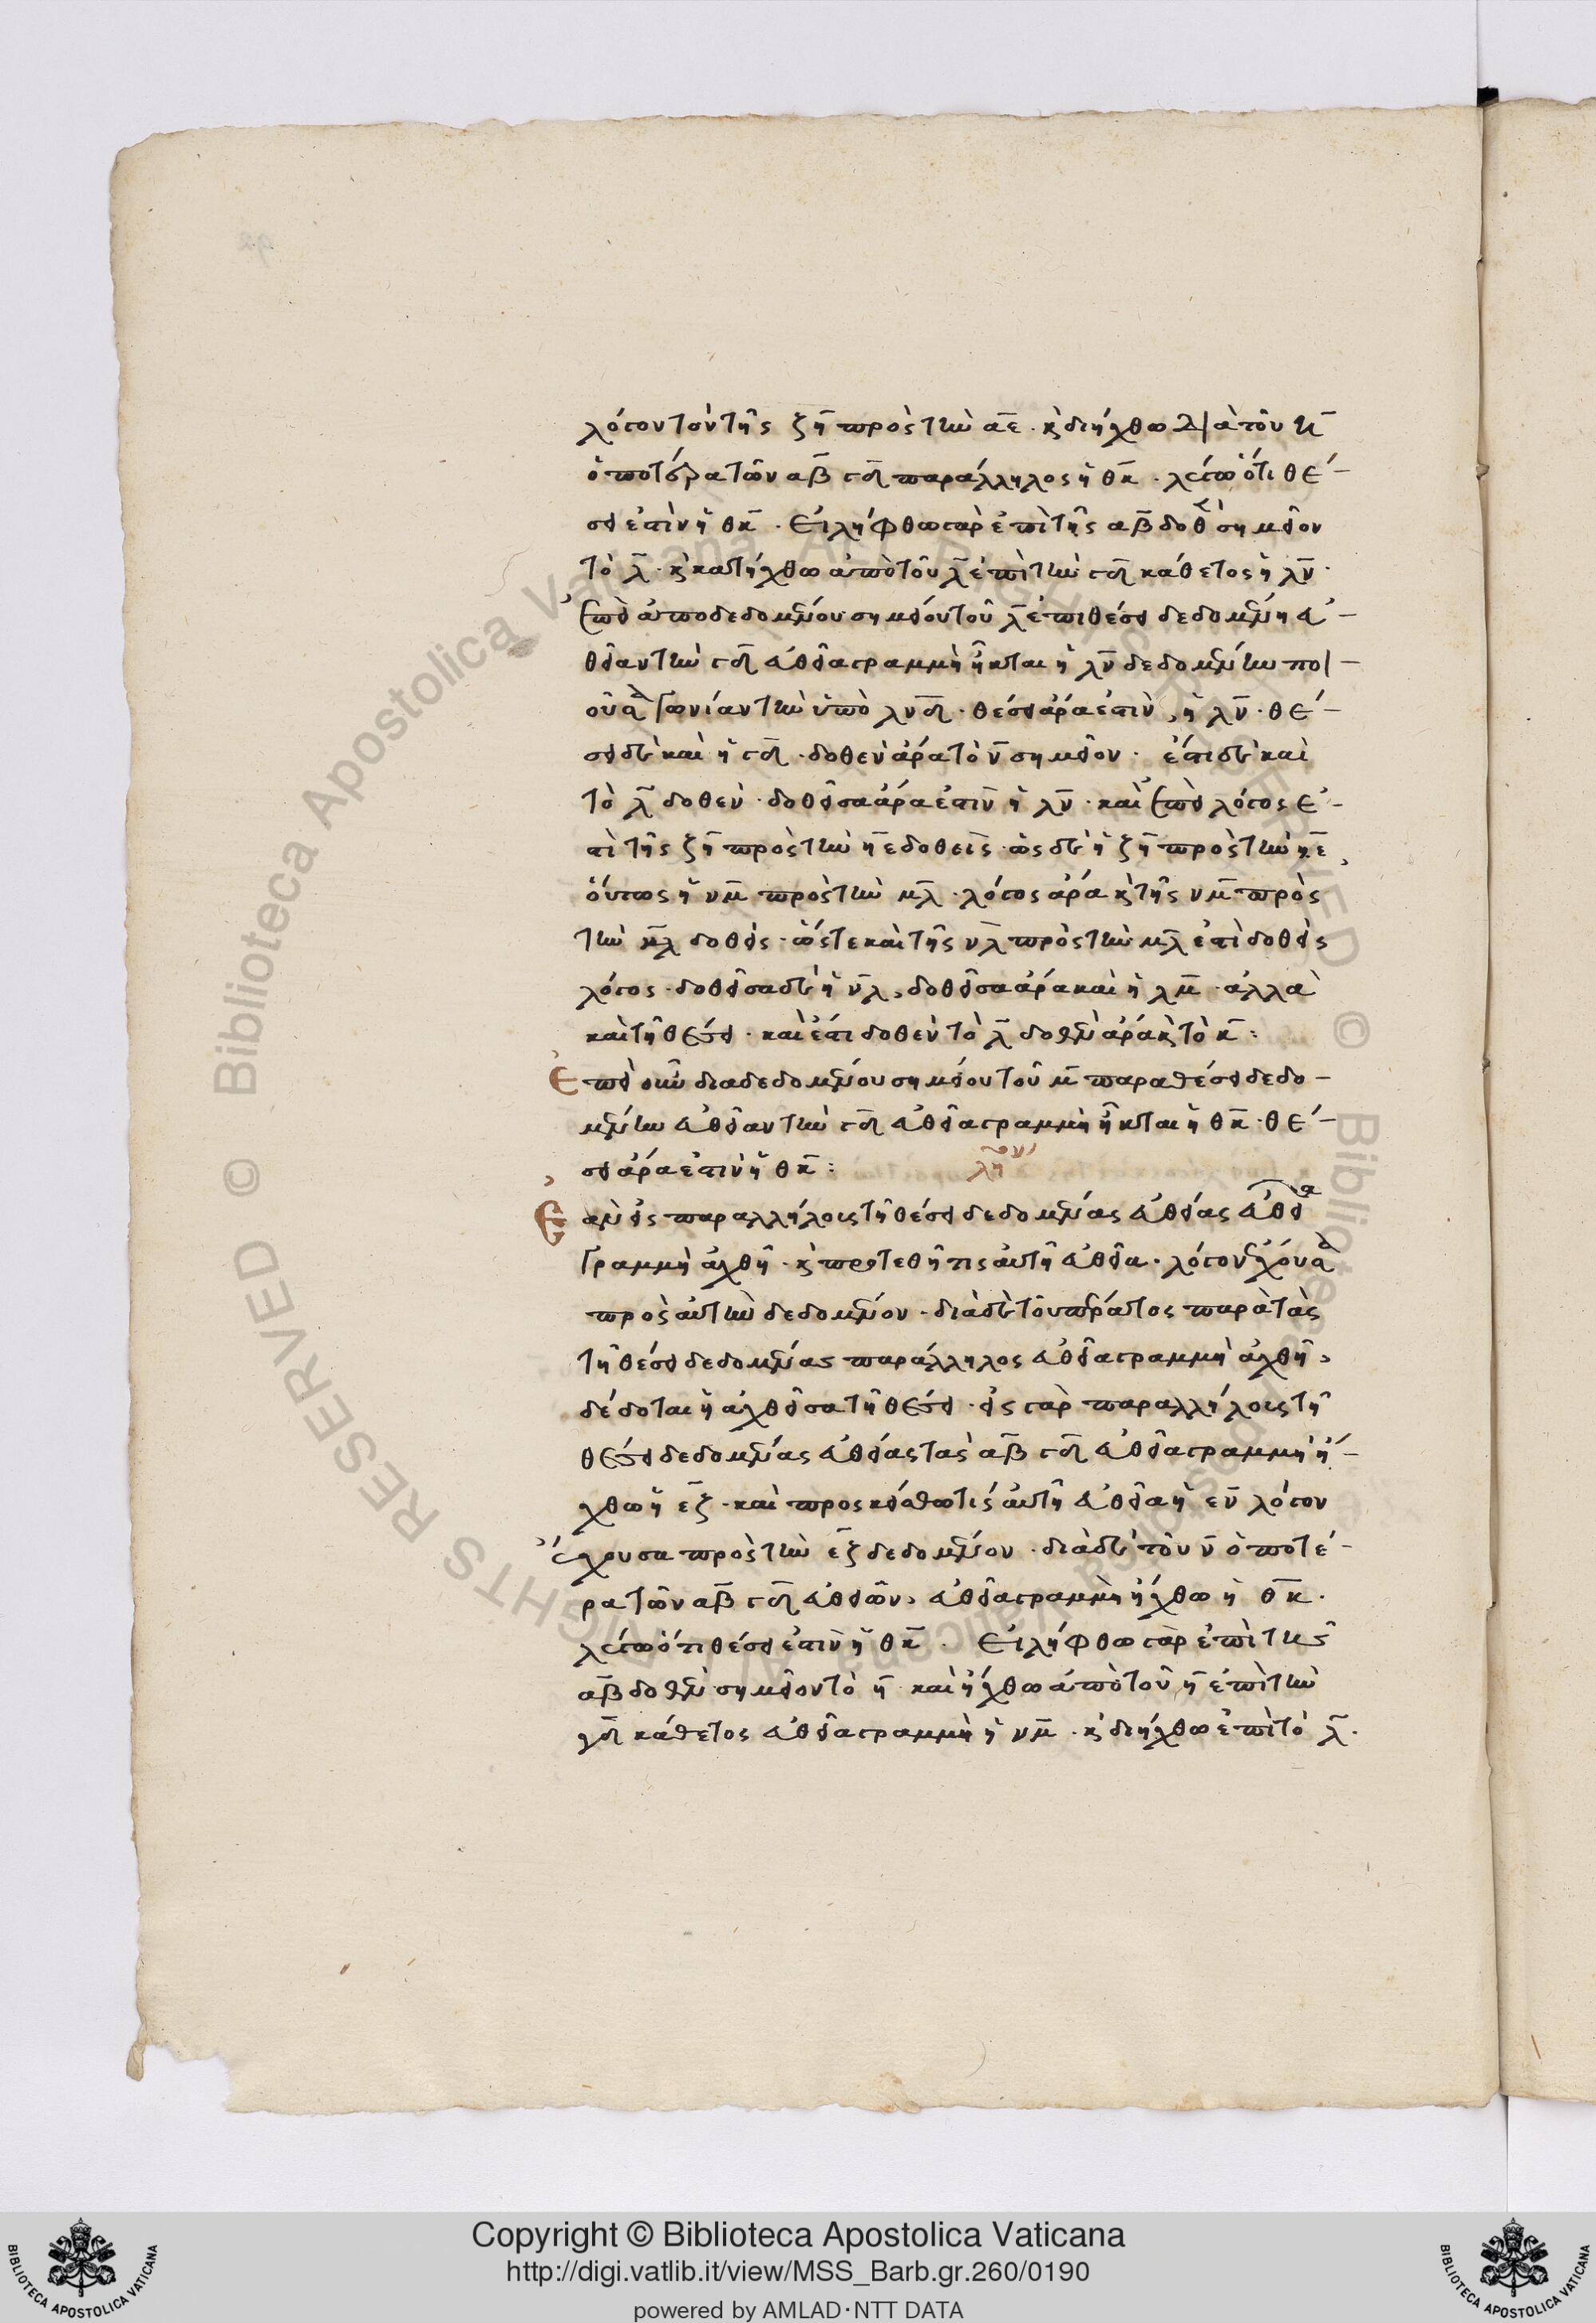 λόγον τὸν τῆς ζη πρὸς τὴν αε. κ διήχθω διὰ τοῦ κ
ὁποτέρα τῶν αβ γδ παράλληλος ἡ θκ. λέγω ὅτι θέ-
σει ἐστὶν ἡ θκ. Εἰλήφθω γὰρ ἐπὶ τῆς αβ δοθὲν σημεῖον
τὸ λ. κ κατήχθω ἀπὸ τοῦ λ ἐπὶ τὴν γδ κάθετος ἡ λν.
ἐπεὶ ἀπὸ δεδομένου σημείου τοῦ λ ἐπὶ θέσει δεδομένη εὐ-
θεῖαν τὴν γδ εὐθεῖα γραμμὴ ἦκται ἡ λν δεδομένην ποι-
οῦσα γωνίαν τὴν ὑπὸ λνδ. θέσει ἄρα ἐστὶν, ἡ λν. θέ-
σει δὲ καὶ ἡ γδ. δοθὲν ἄρα τὸ ν σημεῖον. ἔστι δὲ καὶ
τὸ λ δοθέν. δοθεῖσα ἄρα ἐστὶν ἡ λν. καὶ ἐπεὶ λόγος ἐ-
στὶ τῆς ζη πρὸς τὴν ηε δοθείς. ὡς δὲ ἡ ζη πρὸς τὴν ηε,
οὕτως ἡ νμ πρὸς τὴν μλ. λόγος ἄρα κ τῆς νμ πρὸς
τὴν μλ δοθείς. ὥστε καὶ τῆς νλ πρὸς τὴν μλ ἐστὶ δοθεὶς
λόγος. δοθεῖσα δὲ ἡ νλ, δοθεῖσα ἄρα καὶ ἡ λμ. ἀλλὰ
καὶ τῇ θέσει. καὶ ἔστι δοθὲν τὸ λ δοθὲν ἄρα κ τὸ κ:
Ἐπεὶ οὖν διὰ δεδομένου σημείου τοῦ μ παρὰ θέσει δεδο-
μένην εὐθεῖαν τὴν γδ εὐθεῖα γραμμὴ ἦκται ἡ θκ. θέ-
σει ἄρα ἐστὶν ἡ θκ:
λη
Ἐὰν εἰς παραλλήλους τῇ θέσει δεδομένας εὐθείας εὐθεῖα
γραμμὴ ἀχθῇ. κ προστεθῇ τις αὐτῇ εὐθεῖα. λόγον ἔχουσα
πρὸς αὐτὴν δεδομένον. διὰ δὲ τοῦ πέρατος παρὰ τὰς
τῇ θέσει δεδομένας παράλληλος εὐθεῖα γραμμὴ ἀχθῇ,
δέδοται ἡ ἀχθεῖσα τῇ θέσει. εἰς γὰρ παραλλήλους τῇ
θέσει δεδομένας εὐθείας τὰς αβ γδ εὐθεῖα γραμμὴ ἤ-
χθω ἡ εζ. καὶ προσκείσθω τίς αὐτῇ εὐθεῖα ἡ εν λόγον
ἔχουσα πρὸς τὴν εζ δεδομένον. διὰ δὲ τοῦ ν ὁποτέ-
ρα τῶν αβ γδ εὐθειῶν, εὐθεῖα γραμμὴ ἤχθω ἡ θκ.
λέγω ὅτι θέσει ἐστὶν ἡ θκ. Εἰλήφθω γὰρ ἐπὶ τῆς
αβ δοθὲν σημεῖον τὸ η καὶ ἤχθω ἀπὸ τοῦ η ἐπὶ τὴν
γδ κάθετος εὐθεῖα γραμμὴ ἡ νμ. κ διήχθω ἐπὶ τὸ λ.
Copyright © Biblioteca Apostolica Vaticana
http://digi.vatlib.it/view/MSS_Barb.gr.260/0190
powered by AMLAD·NTT DATA